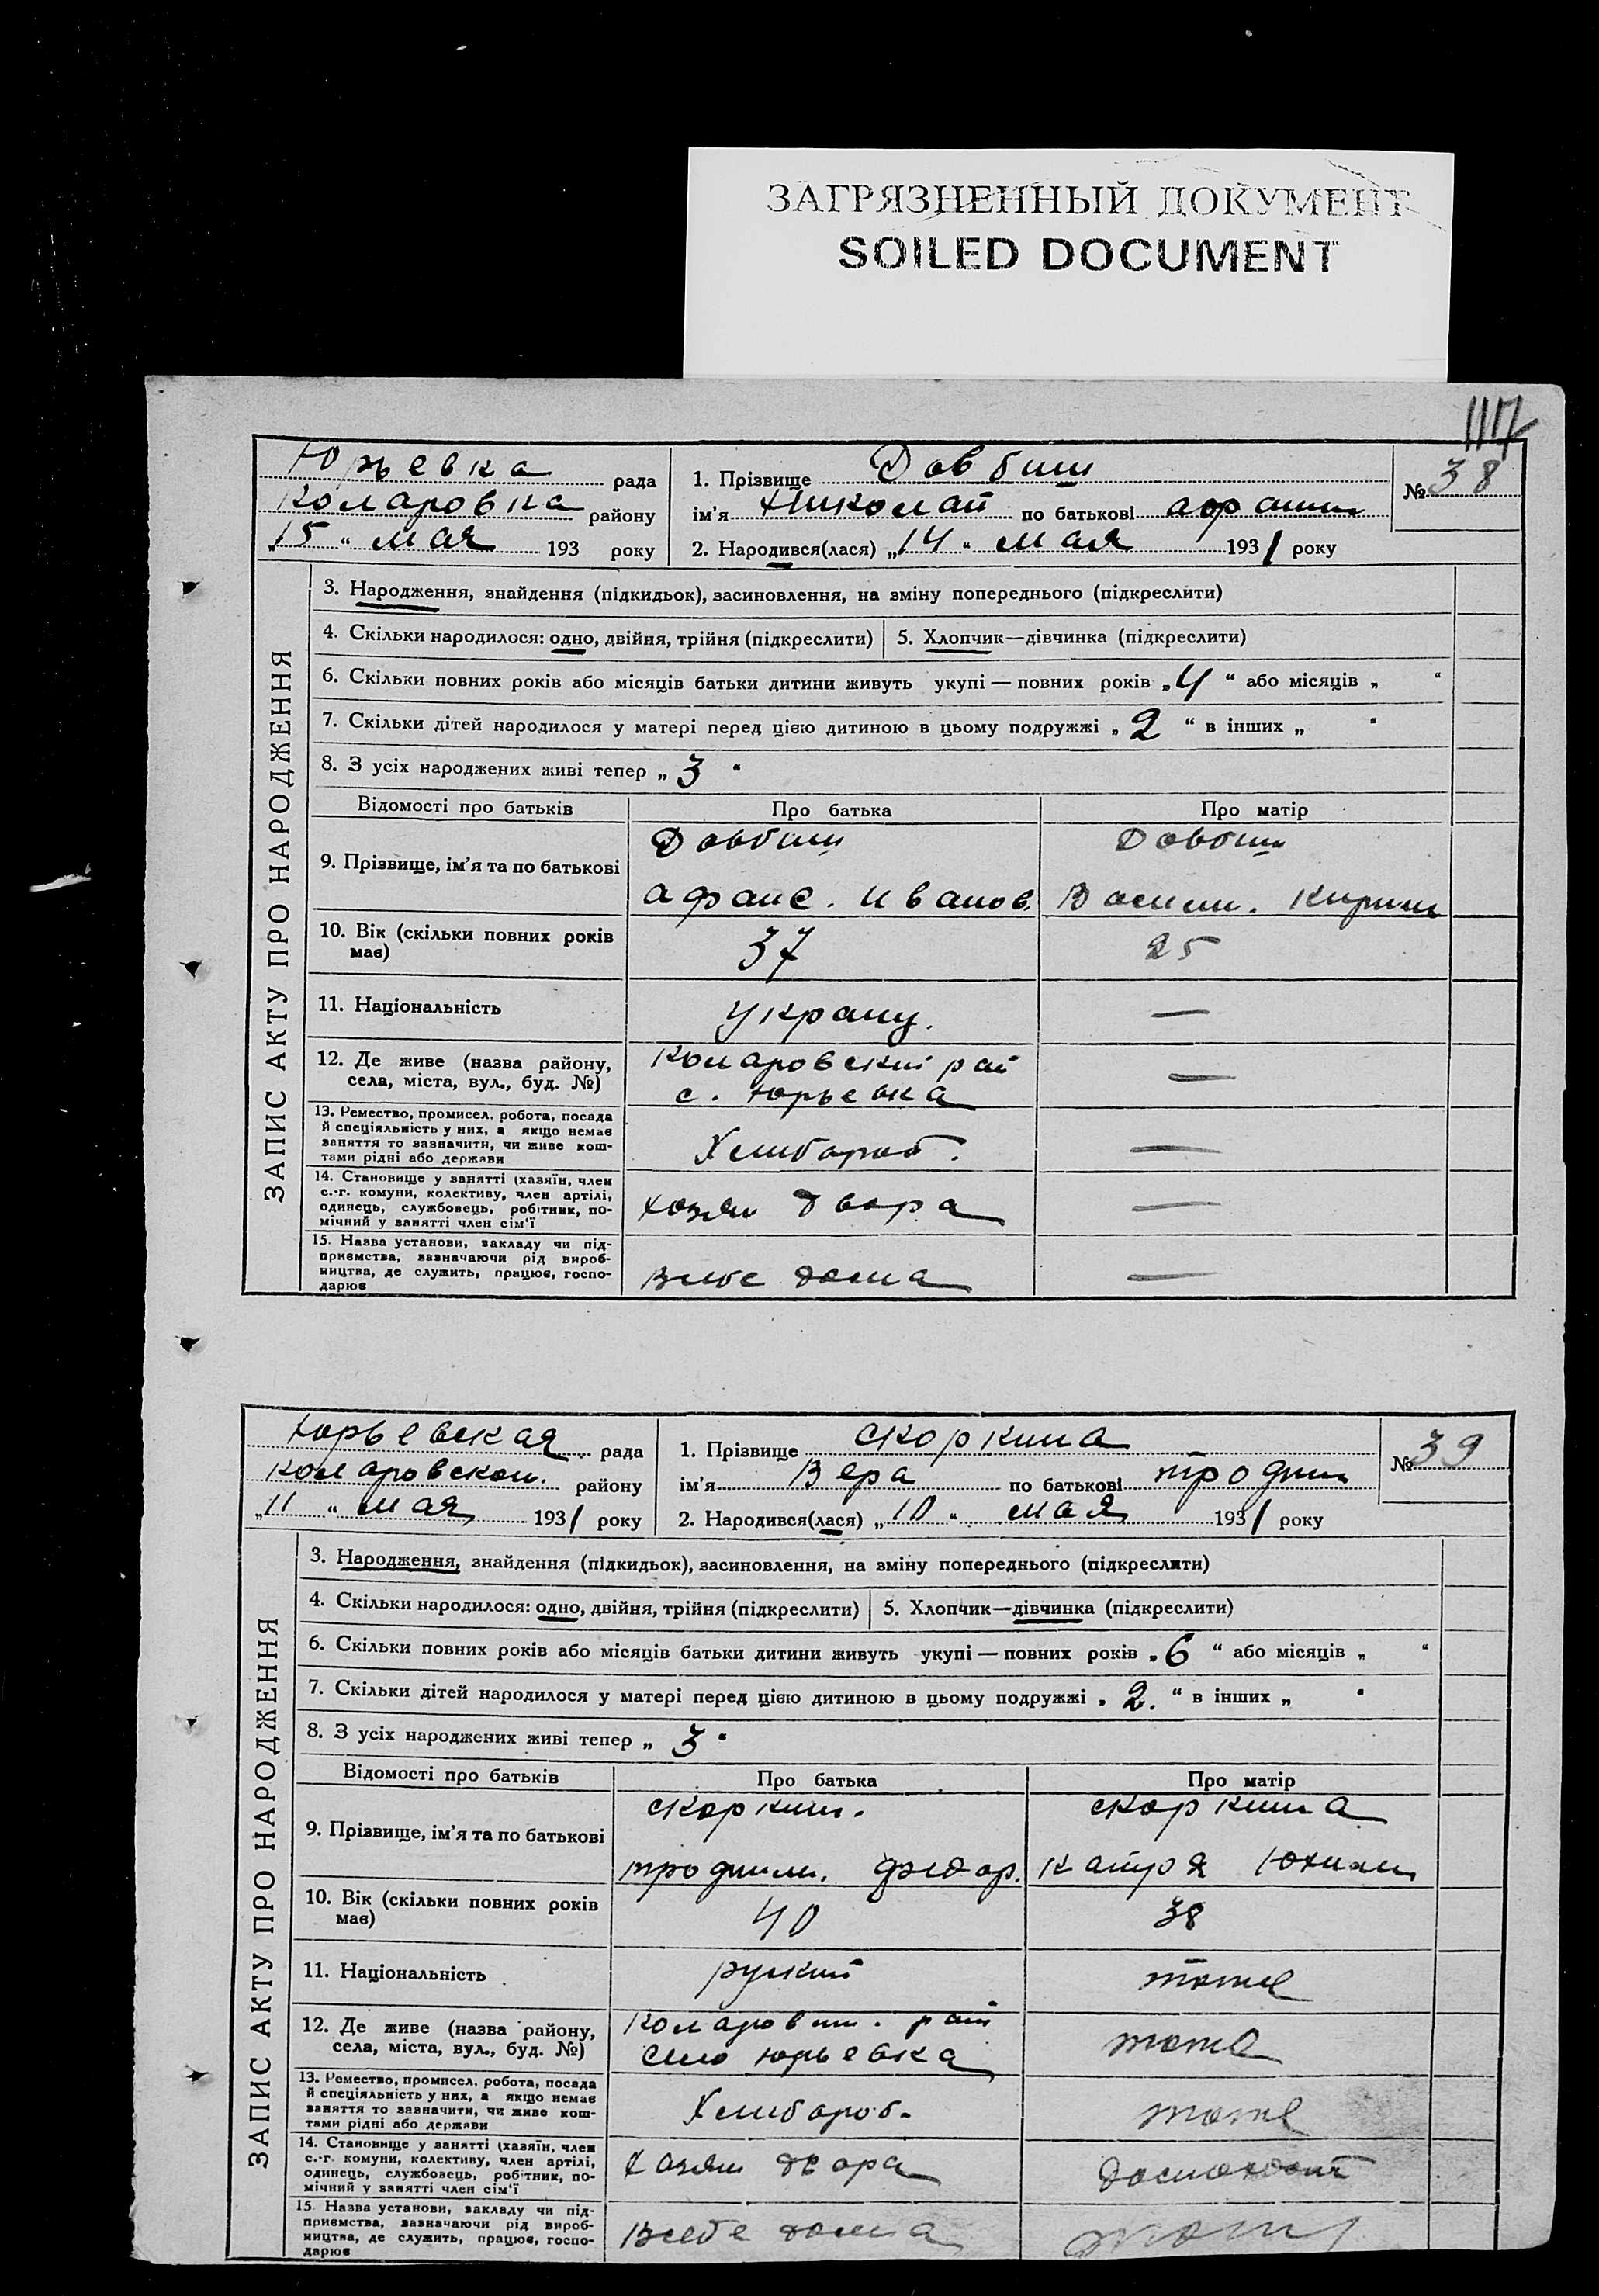 ЗАГРЯЗНЕННЫЙ ДОКУМЕНТ
SOILED DOCUMENT
1117
Юрьевка рада
Комаровка району
„15“ мая 193 року
1. Прізвище Довбиш
ім'я Николай по батькові
2. Народився(лася) „14“ мая 1931 року
№ 38
ЗАПИС АКТУ ПРО НАРОДЖЕННЯ
3. Народження, знайдення (підкидьок), засиновлення, на зміну попереднього (підкреслити)
4. Скільки народилося: одно, двійня, трійня (підкреслити) 5. Хлопчик—дівчинка (підкреслити)
6. Скільки повних років або місяців батьки дитини живуть укупі — повних років „4“ або місяців „ “
7. Скільки дітей народилося у матері перед цією дитиною в цьому подружжі „2“ в інших „ “
8. З усіх народжених живі тепер „3“
Відомості про батьків Про батька Про матір
9. Прізвище, ім'я та по батькові Довбиш Довбиш
Афанс. Иванов.
10. Вік (скільки повних років має) 37 25
11. Національність украинц. —
12. Де живе (назва району, села, міста, вул., буд. №) Комаровский рай —
с. Юрьевка
13. Ремество, промисел, робота, посада
й спеціяльність у них, а якщо немає
заняття то зазначити, чи живе кош-
тами рідні або держави
Хлибороб. —
14. Становище у занятті (хазяїн, член
с.-г. комуни, колективу, член артілі,
одинець, службовець, робітник, по-
мічний у занятті член сім'ї
хозяин двора —
15. Назва установи, закладу чи під-
приємства, зазначаючи рід вироб-
ництва, де служить, працює, госпо-
дарює
дома —
Юрьевская рада
Комаровском. району
„11“ мая 1931 року
1. Прізвище Скоркина
ім'я Вера по батькові
2. Народився(лася) „10“ мая 1931 року
№ 39
ЗАПИС АКТУ ПРО НАРОДЖЕННЯ
3. Народження, знайдення (підкидьок), засиновлення, на зміну попереднього (підкреслити)
4. Скільки народилося: одно, двійня, трійня (підкреслити) 5. Хлопчик—дівчинка (підкреслити)
6. Скільки повних років або місяців батьки дитини живуть укупі — повних років „6“ або місяців „ “
7. Скільки дітей народилося у матері перед цією дитиною в цьому подружжі „2.“ в інших „ “
8. З усіх народжених живі тепер „3“
Відомості про батьків Про батька Про матір
9. Прізвище, ім'я та по батькові Скоркин. Скоркина
Трофим. Федор.
10. Вік (скільки повних років має) 40 38
11. Національність руский тоже
12. Де живе (назва району, села, міста, вул., буд. №) рай тоже
село Юрьевка
13. Ремество, промисел, робота, посада
й спеціяльність у них, а якщо немає
заняття то зазначити, чи живе кош-
тами рідні або держави
Хлибороб. тоже
14. Становище у занятті (хазяїн, член
с.-г. комуни, колективу, член артілі,
одинець, службовець, робітник, по-
мічний у занятті член сім'ї
хозяин двора
15. Назва установи, закладу чи під-
приємства, зазначаючи рід вироб-
ництва, де служить, працює, госпо-
дарює
дома